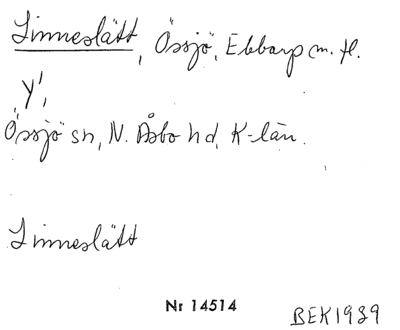 Linneslätt, Össjö, Ebbarp m. fl.
Y',
Össjö sn, N. Åsbo hd, K-län.
Linneslätt
Nr 14514
BEK1939